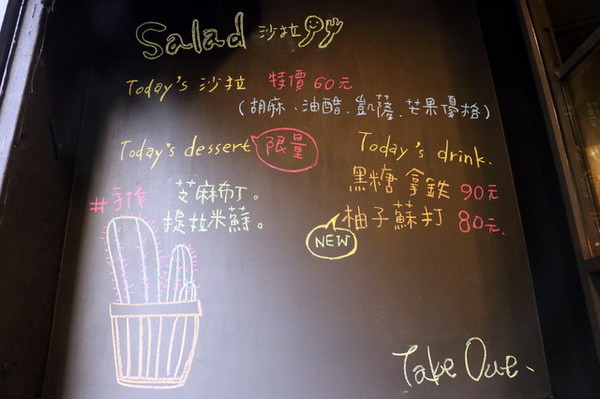 Salad 沙拉
Today's 沙拉 特價60元
(胡麻、油醋、凱薩、芒果優格)
Today's dessert 限量
#手作 芝麻布丁。
提拉米蘇。
Today's drink.
黑糖拿鐵 90元
柚子蘇打 80元.
NEW
Take Out.